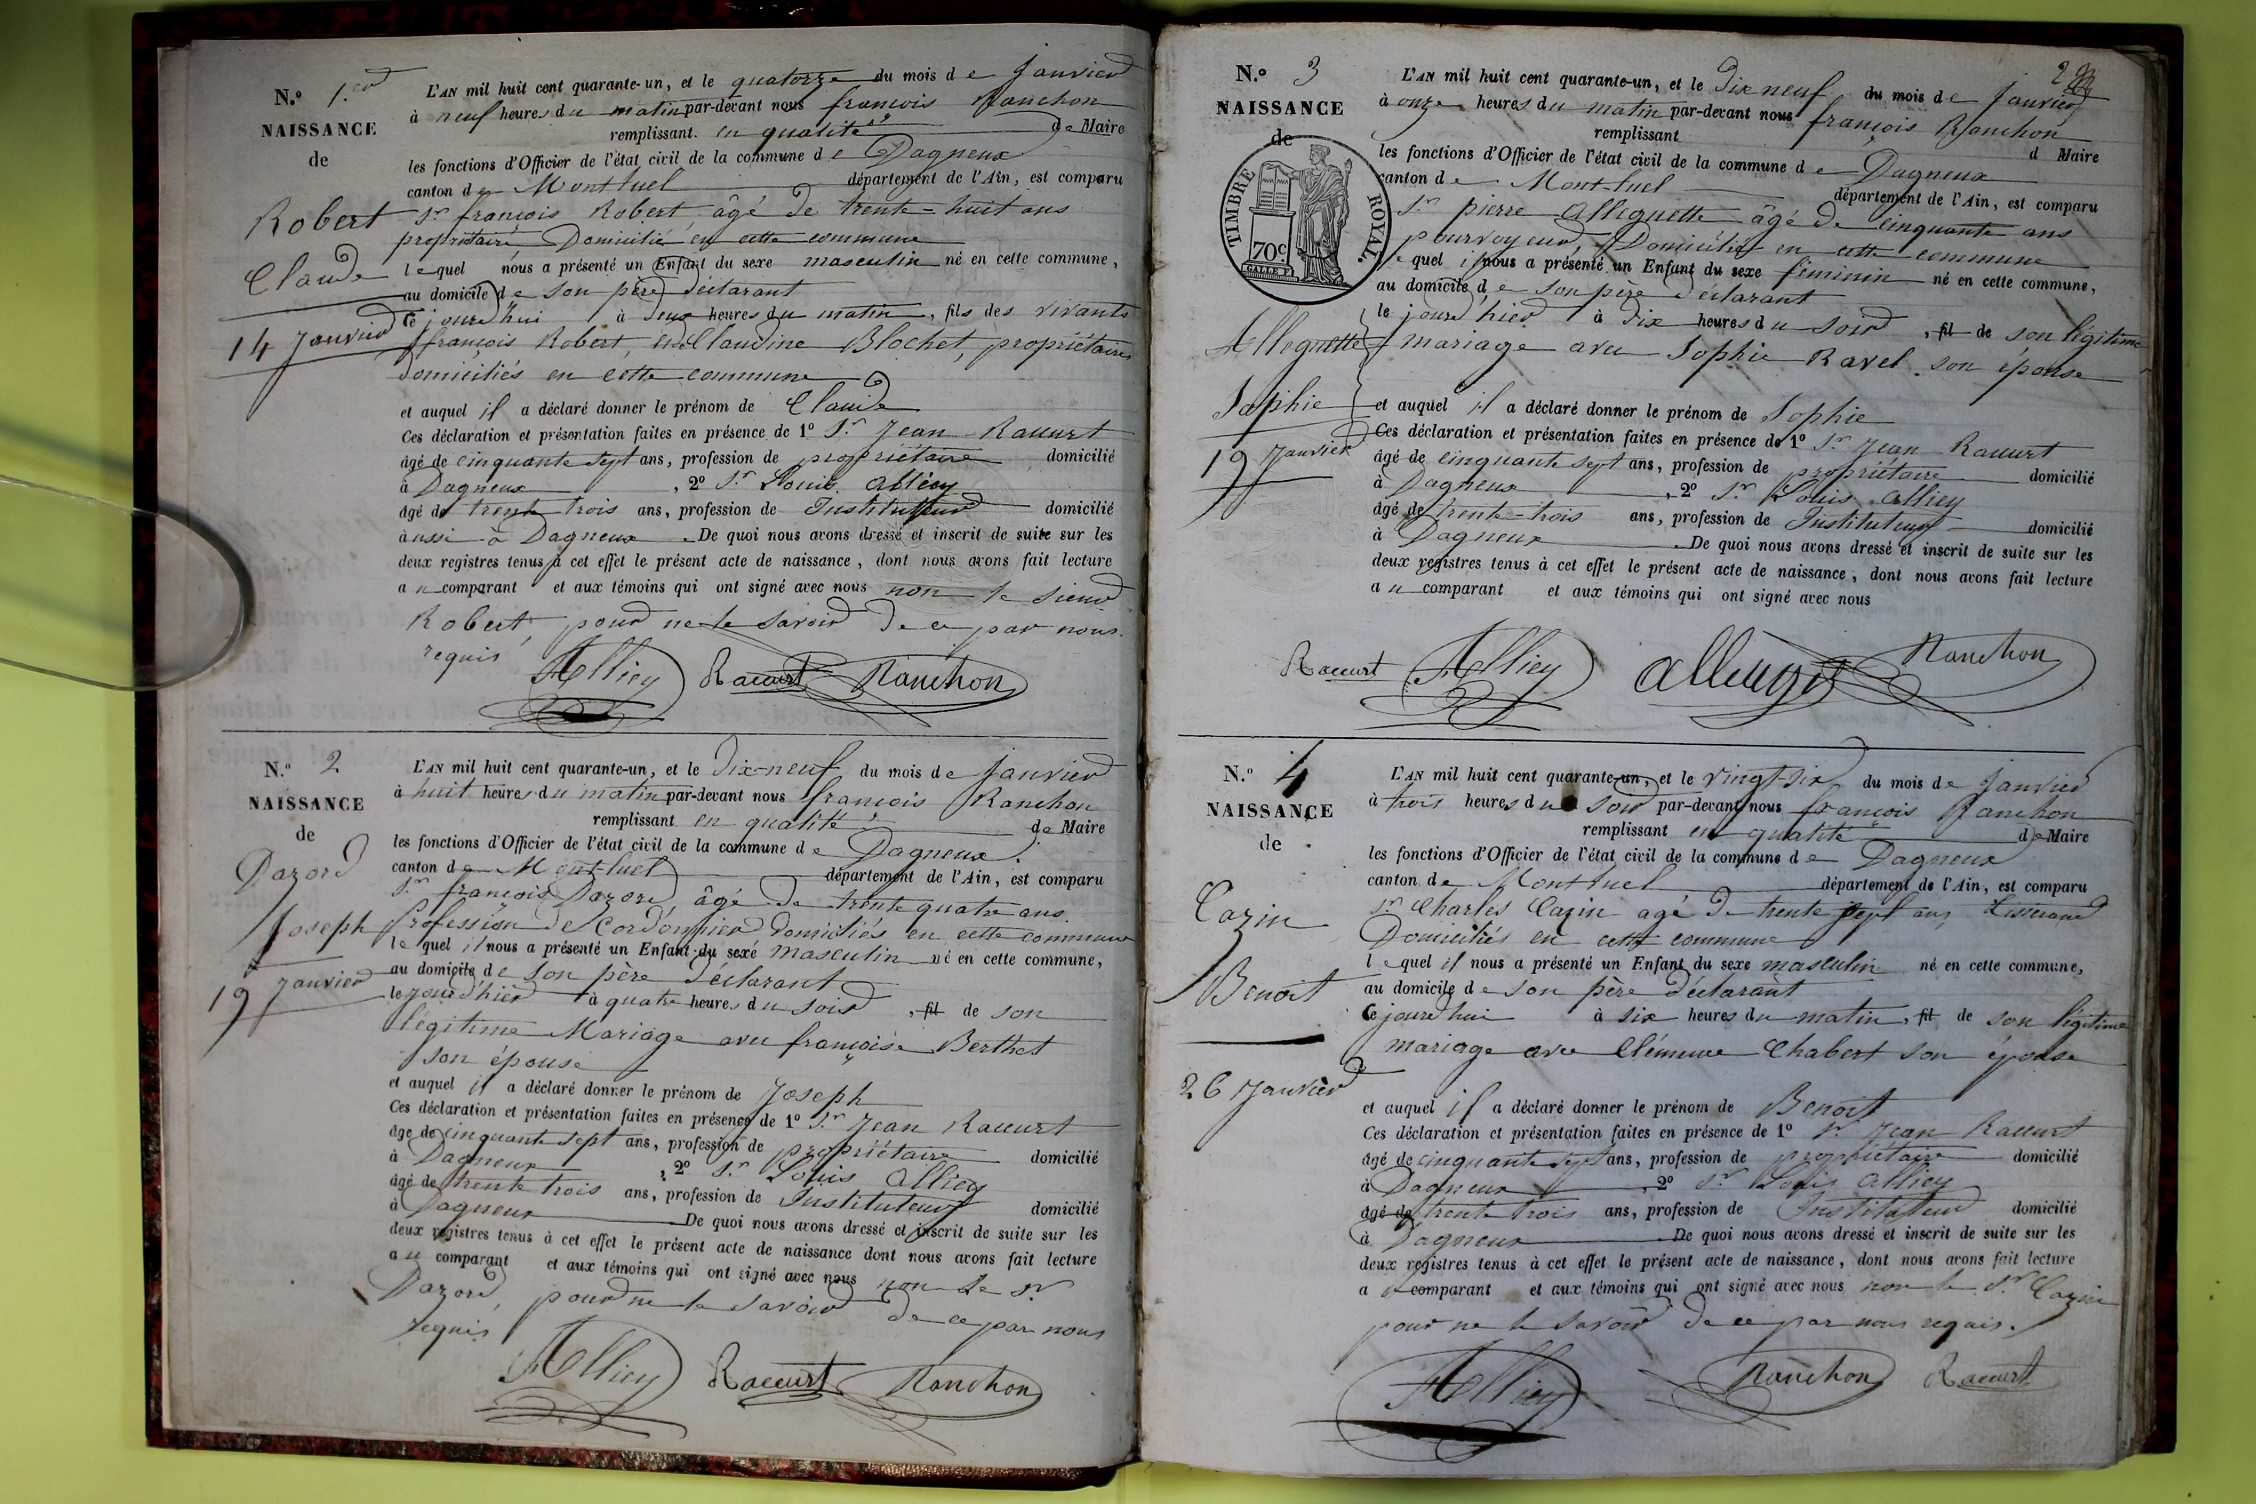 N.° 1.er
NAISSANCE
de
Robert
Claude
14 Janvier
L'AN mil huit cent quarante-un, et le quatorze du mois de Janvier
à neuf heures du matin par-devant nous françois Ranchon
remplissant en qualité de Maire
les fonctions d'Officier de l'état civil de la commune de Dagneux
canton de Montluel département de l'Ain, est comparu
Sr françois Robert âgé de trente-huit ans
propriétaire Domicilié en cette commune
lequel nous a présenté un Enfant du sexe masculin né en cette commune,
au domicile de son père déclarant
ce jourd'hui à deux heures du matin, fils des vivants
françois Robert, et Claudine Blochet, propriétaires
domiciliés en cette commune
et auquel il a déclaré donner le prénom de Claude
Ces déclaration et présentation faites en présence de 1° Sr Jean Raccurt
âgé de cinquante sept ans, profession de propriétaire domicilié
à Dagneux, 2° Sr Louis Alliey
âgé de trente trois ans, profession de Instituteur domicilié
aussi à Dagneux. De quoi nous avons dressé et inscrit de suite sur les
deux registres tenus à cet effet le présent acte de naissance, dont nous avons fait lecture
au comparant et aux témoins qui ont signé avec nous non le sieur
Robert pour ne le savoir de ce par nous
requis
Alliey Raccurt Ranchon
N.° 2
NAISSANCE
de
Dazord
Joseph
19 Janvier
L'AN mil huit cent quarante-un, et le Dix-neuf du mois de Janvier
à huit heures du matin par-devant nous françois Ranchon
remplissant en qualité de Maire
les fonctions d'Officier de l'état civil de la commune de Dagneux.
canton de Montluel département de l'Ain, est comparu
Sr françois Dazord, âgé de trente quatre ans.
Profession de Cordonnier domiciliés en cette commune
lequel il nous a présenté un Enfant du sexe masculin né en cette commune,
au domicile de son père déclarant
le jour d'hier à quatre heures du soir, fil de son
légitime Mariage avec françoise Berthet
son épouse
et auquel il a déclaré donner le prénom de Joseph
Ces déclaration et présentation faites en présence de 1° Sr Jean Raccurt
âgé de cinquante sept ans, profession de propriétaire domicilié
à Dagneux, 2° Sr Louis Alliey
âgé de trente trois ans, profession de Instituteur domicilié
à Dagneux De quoi nous avons dressé et inscrit de suite sur les
deux registres tenus à cet effet le présent acte de naissance dont nous avons fait lecture
au comparant et aux témoins qui ont signé avec nous non le Sr
Dazord, pour ne le savoir de ce par nous
requis
Alliey Raccurt Ranchon
2
N.° 3
NAISSANCE
de
TIMBRE ROYAL.
70c
Alleguette
Sophie
19 Janvier
L'AN mil huit cent quarante-un, et le Dix neuf du mois de Janvier
à onze heures du matin par-devant nous françois Ranchon
remplissant d Maire
les fonctions d'Officier de l'état civil de la commune de Dagneux
canton de Montluel département de l'Ain, est comparu
Sr pierre Alleguette âgé de cinquante ans
pourvoyeur, Domicilié en cette commune
lequel il nous a présenté un Enfant du sexe féminin né en cette commune,
au domicile de son père déclarant
le jour d'hier à dix heures du soir, fil de son légitime
mariage avec Sophie Ravel son épouse
et auquel il a déclaré donner le prénom de Sophie
Ces déclaration et présentation faites en présence de 1° Sr Jean Raccurt
âgé de cinquante sept ans, profession de propriétaire domicilié
à Dagneux, 2° Sr Louis Alliey
âgé de trente-trois ans, profession de Instituteur domicilié
à Dagneux. De quoi nous avons dressé et inscrit de suite sur les
deux registres tenus à cet effet le présent acte de naissance, dont nous avons fait lecture
au comparant et aux témoins qui ont signé avec nous
Raccurt Alliey Ranchon
N.° 4
NAISSANCE
de
Cazin
Benoît
26 Janvier
L'AN mil huit cent quarante-un, et le vingt-six du mois de Janvier
à trois heures du soir par-devant nous françois Ranchon
remplissant en qualité de Maire
les fonctions d'Officier de l'état civil de la commune de Dagneux
canton de Montluel département de l'Ain, est comparu
Sr Charles Cazin agé de trente sept ans, Tisserand
Domiciliés en cette commune
lequel il nous a présenté un Enfant du sexe masculin né en cette commune,
au domicile de son père déclarant
ce jourd'hui à six heures du matin, fil de son légitime
mariage avec Clémence Chabert son épouse
et auquel il a déclaré donner le prénom de Benoît
Ces déclaration et présentation faites en présence de 1° Sr Jean Raccurt
âgé de cinquante sept ans, profession de propriétaire domicilié
à Dagneux, 2° Sr Louis Alliey
âgé de trente trois ans, profession de Instituteur domicilié
à Dagneux. De quoi nous avons dressé et inscrit de suite sur les
deux registres tenus à cet effet le présent acte de naissance, dont nous avons fait lecture
au comparant et aux témoins qui ont signé avec nous non le Sr Cazin
pour ne le savoir de ce par nous requis.
Alliey Ranchon Raccurt